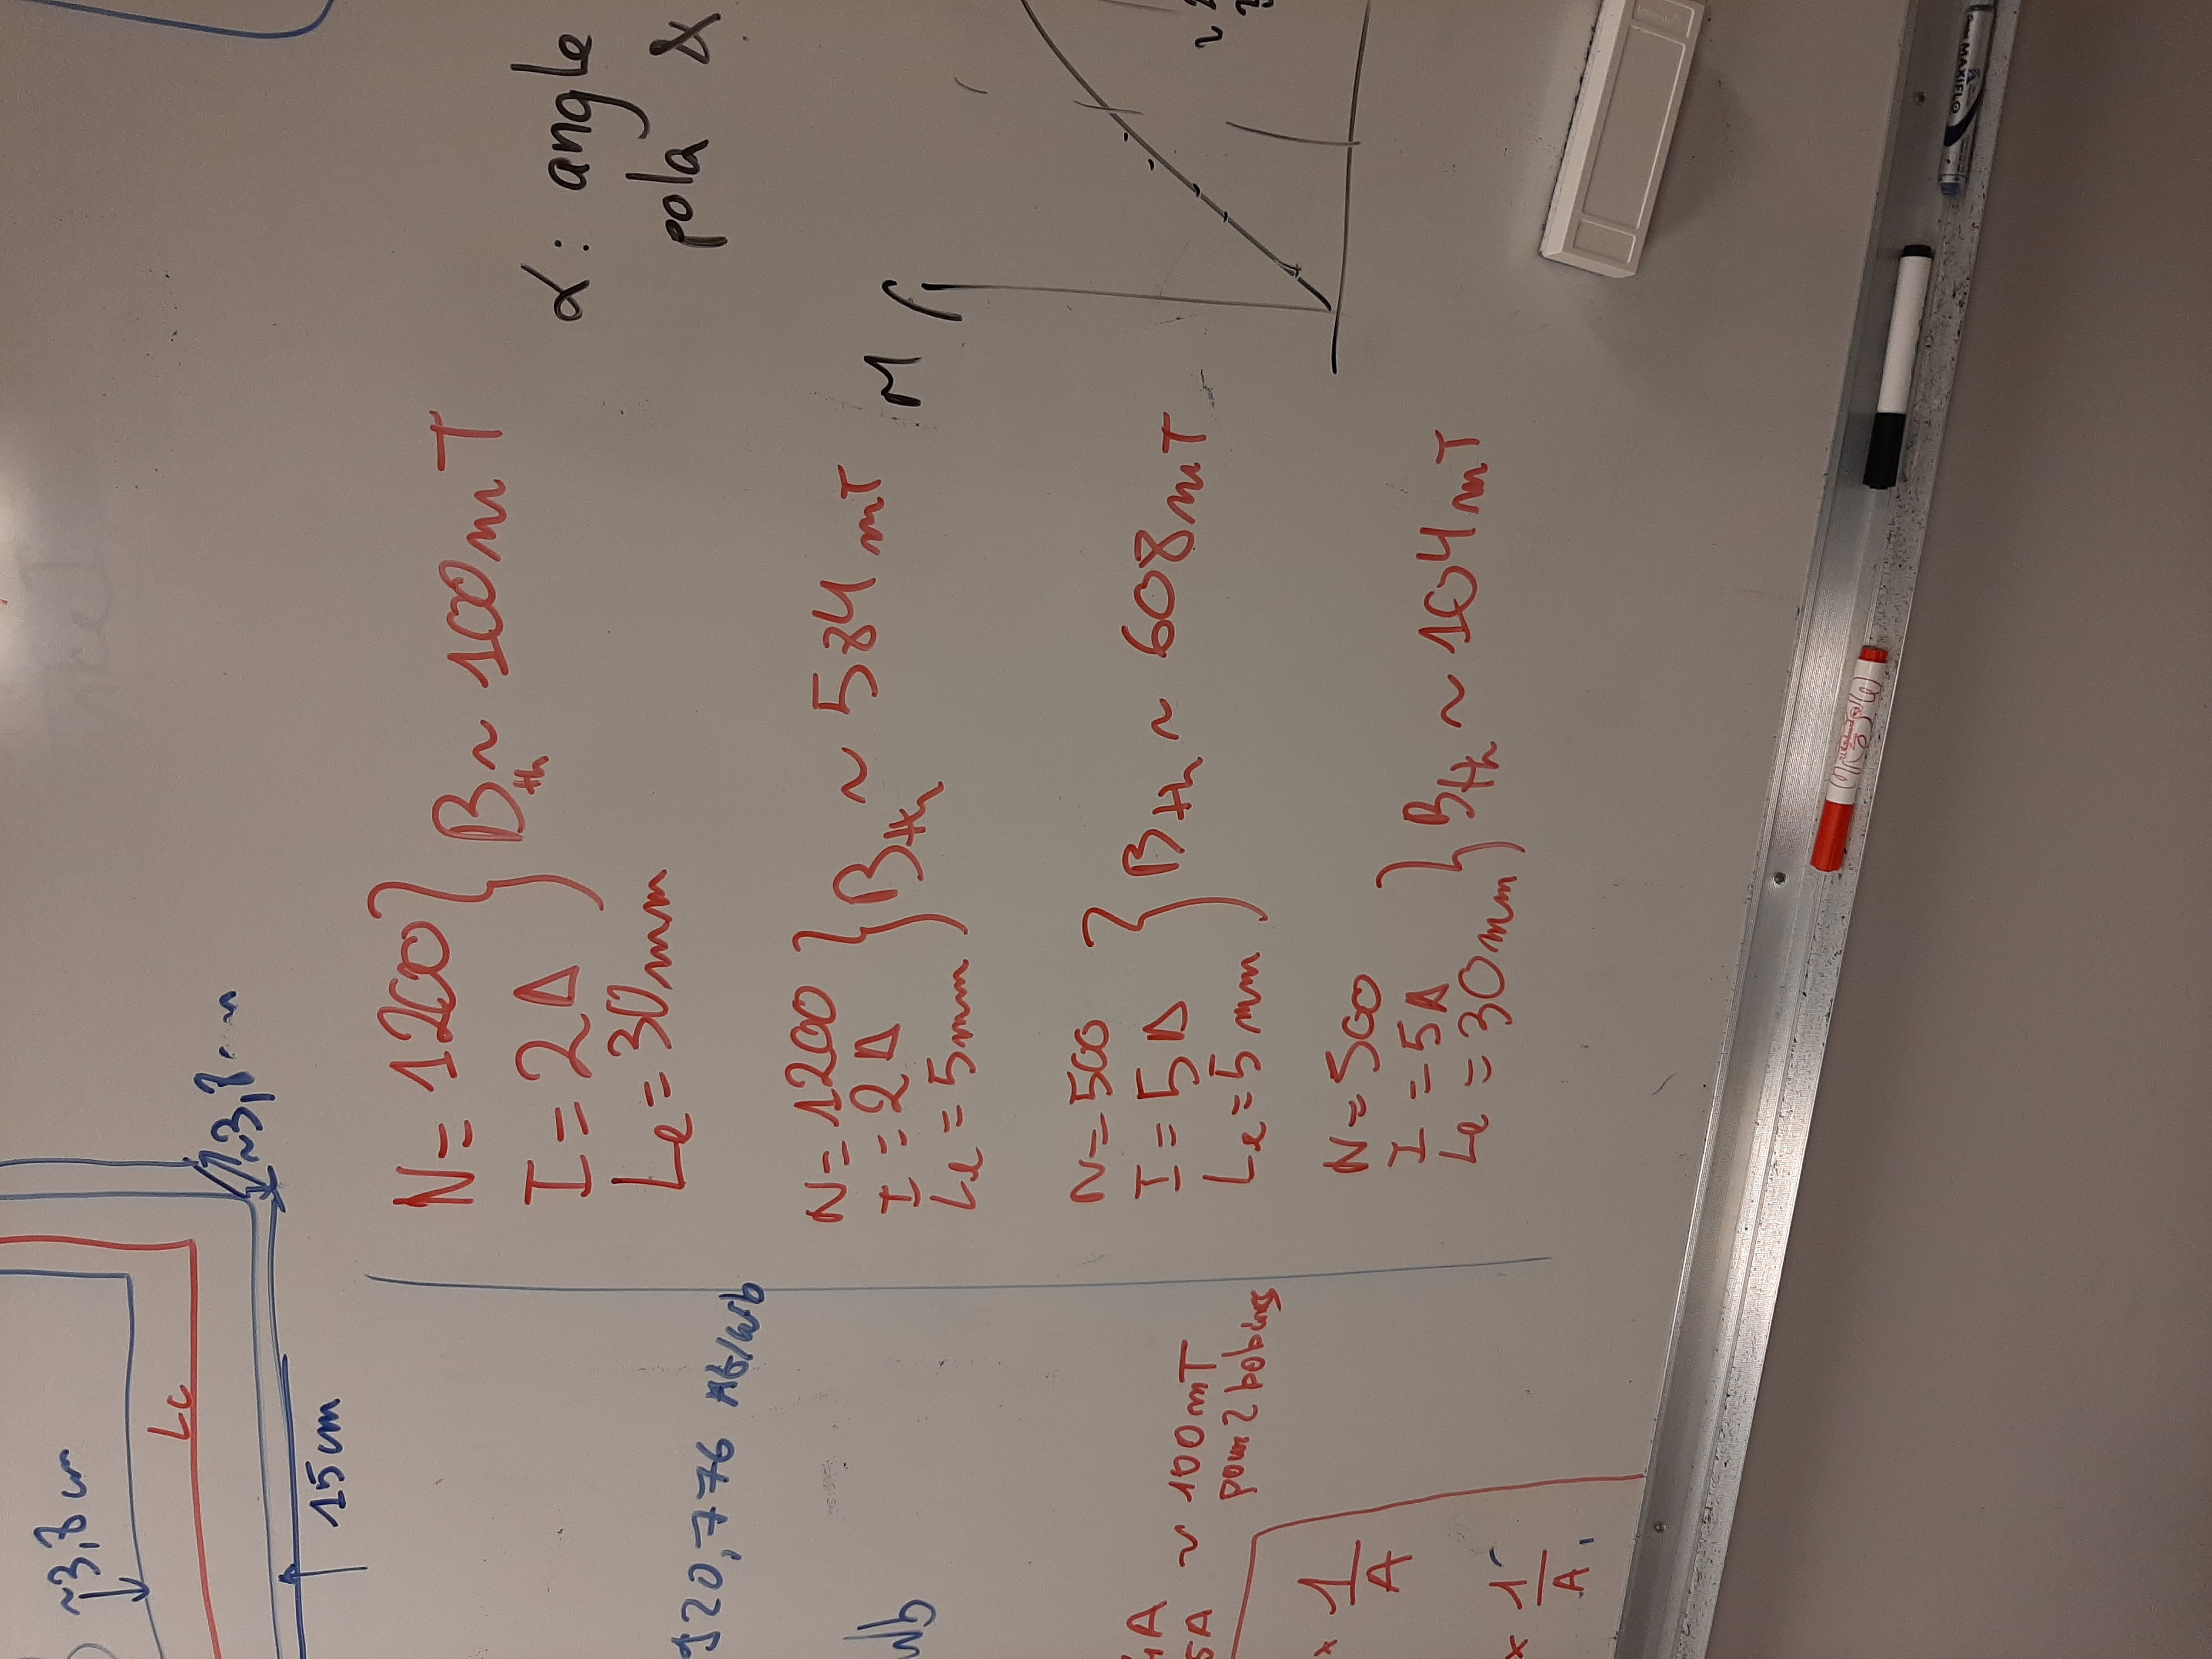 ~3,8 cm
Lc
15 cm
~3,8
320,776 At/Wb
Wb
~ 100mT
pour 2 bobines
5A
x 1/A
x 1/A
N = 1200
I = 2A
Le = 30mm
} Bth ~ 100mT
N = 1200
I = 2A
Le = 5mm
} Bth ~ 584 mT
N = 500
I = 5A
Le = 5mm
} Bth ~ 608mT
N = 500
I = 5A
Le = 30mm
} Bth ~ 104mT
α : angle
pola &
M
MAXIFLO